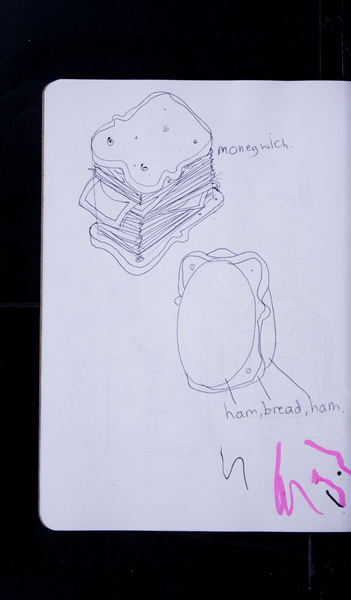 moneywich.
ham, bread, ham.